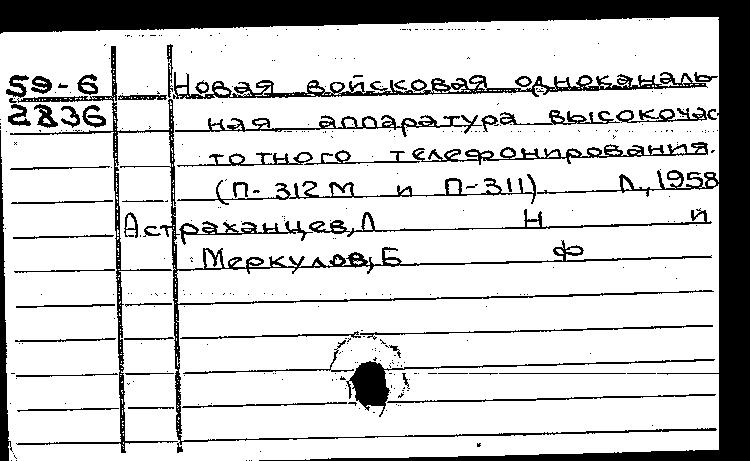 59-6 Новая войсковая одноканаль-
2836 ная аппаратура высокочас
тотного телефонирования.
(П-312М и П-311). Л., 1958
Астраханцев, Л Н и
Меркулов, Б Ф